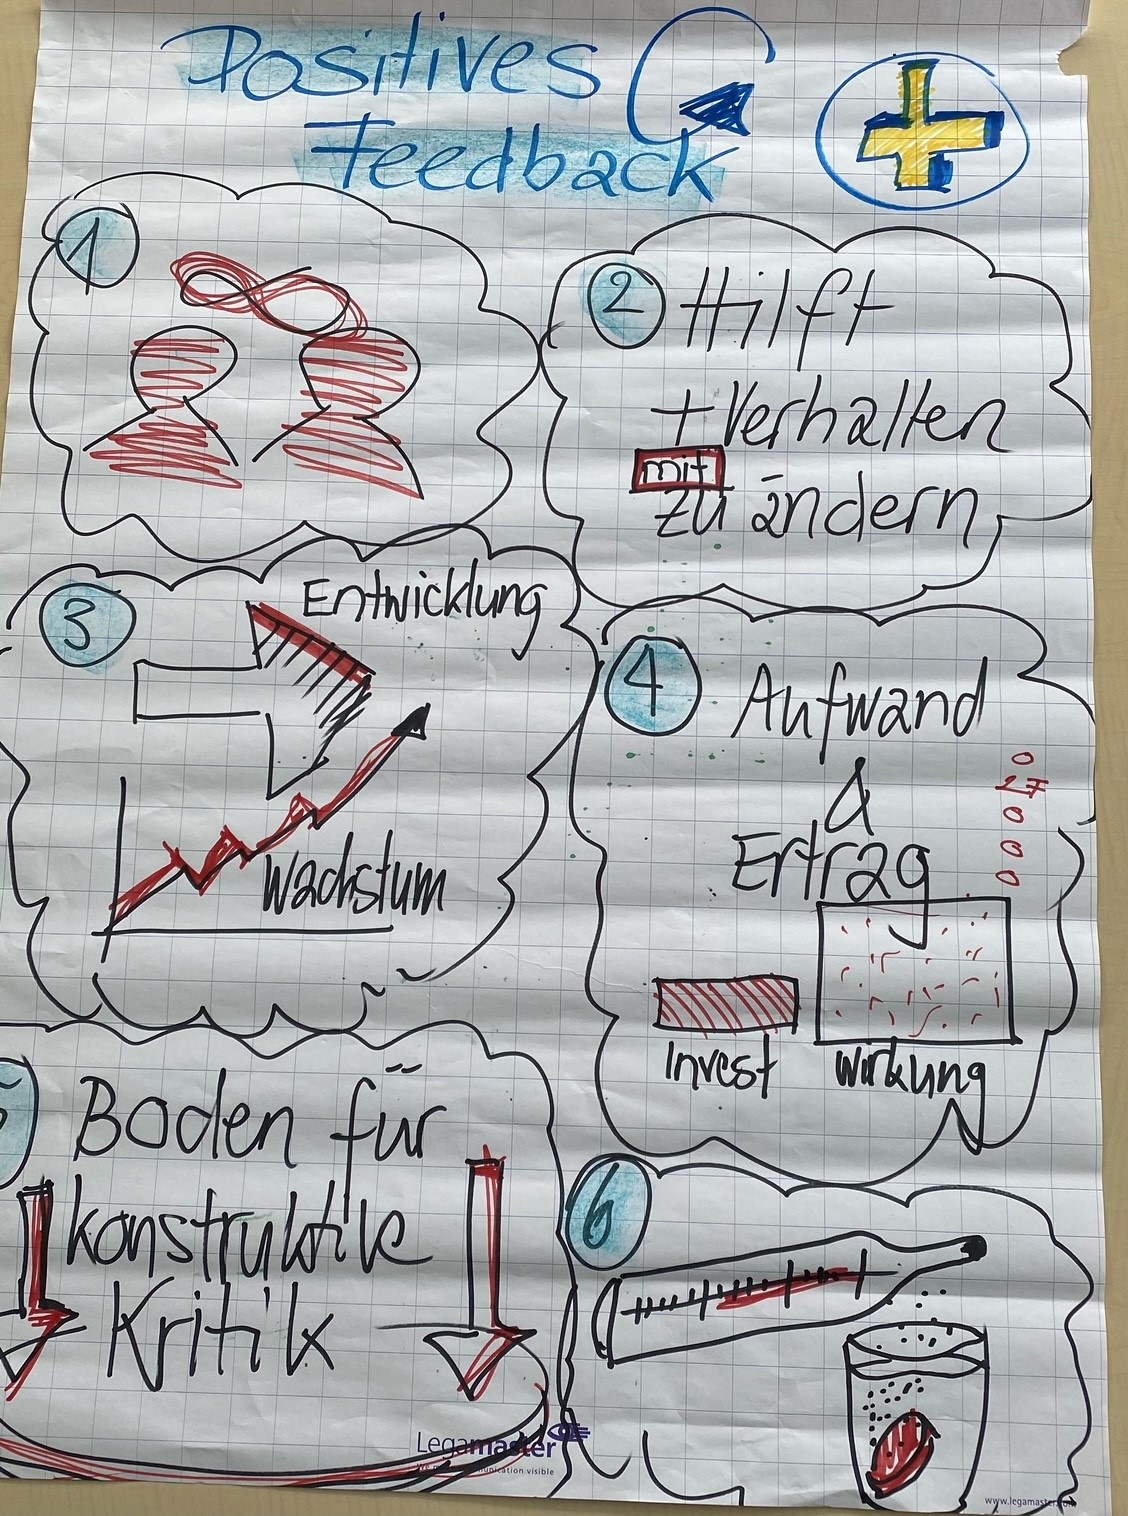 Positives
Feedback
1
2 Hilft
+Verhalten
mit
zu ändern
3 Entwicklung
Wachstum
4 Aufwand
&
Ertrag
Invest Wirkung
Boden für
konstruktive
Kritik
6
Legamaster
www.legamaster.com